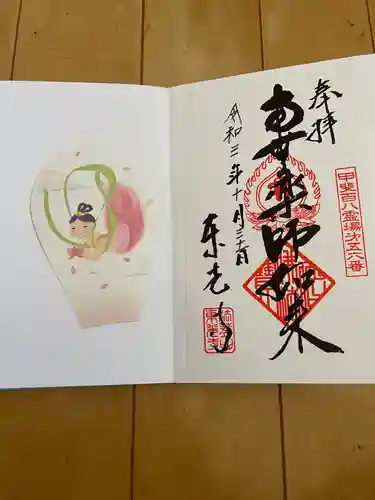 奉拝
甲斐百八霊場第五六番
南無薬師如来
令和三年十月三十一日
東光寺